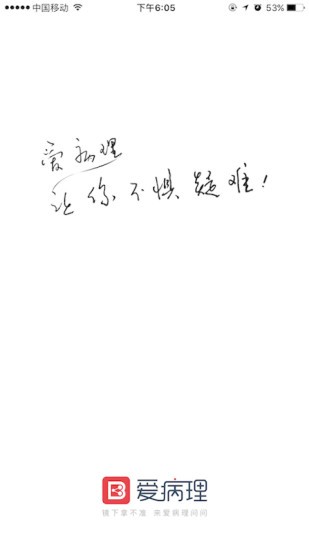 中国移动 下午6:05 53%
爱病理
让你不惧疑难！
爱病理
镜下拿不准 来爱病理问问